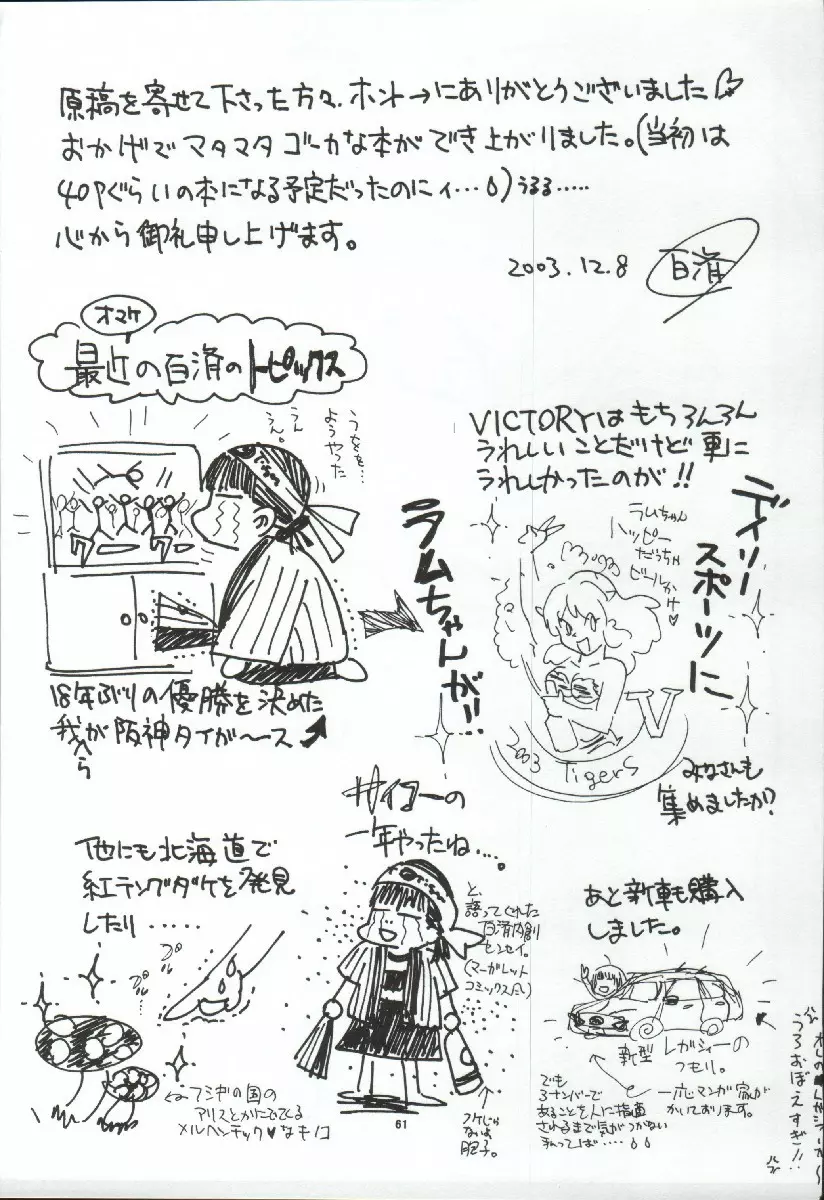 原稿を寄せて下さった方々、ホントーにありがとうございました
おかげで マタマタ ゴーカな本ができ上がりました。(当初は
40Pぐらいの本になる予定だったのにィ…)うるる……
心から御礼申し上げます。
2003.12.8 百済
オマケ
最近の百済のトピックス
うをを…
ようやった
うんうん。
18年ぶりの優勝を決めた
我が阪神タイガ～ース
VICTORYはもちろんろん
うれしいことだけど 更に
うれしかったのが!!
デイリー
スポーツに
ラムちゃんが…!!
ラムちゃん
ハッピー
だっちゃ
ビールかけ♥
V
2003 Tigers
みなさんも
集めましたか?
サイコーの
一年やったね…。
と、
語ってくれた
百済内創
センセイ。
(マーガレット
コミックスだし)
フケじゃ
ないよ
胞子。
他にも北海道で
紅テングダケを発見
したり……
プル
プル
フシギの国の
アリスとかにでてくる
メルヘンチック♥なキノコ
あと新車も購入
しました。
新型 レガシィーの
つもり。
一応マンガ家が
かいております。
でも
3ナンバーで
あることを人に指摘
されるまで気がつかない
私ってば……
うろおぼえすぎ!!
61